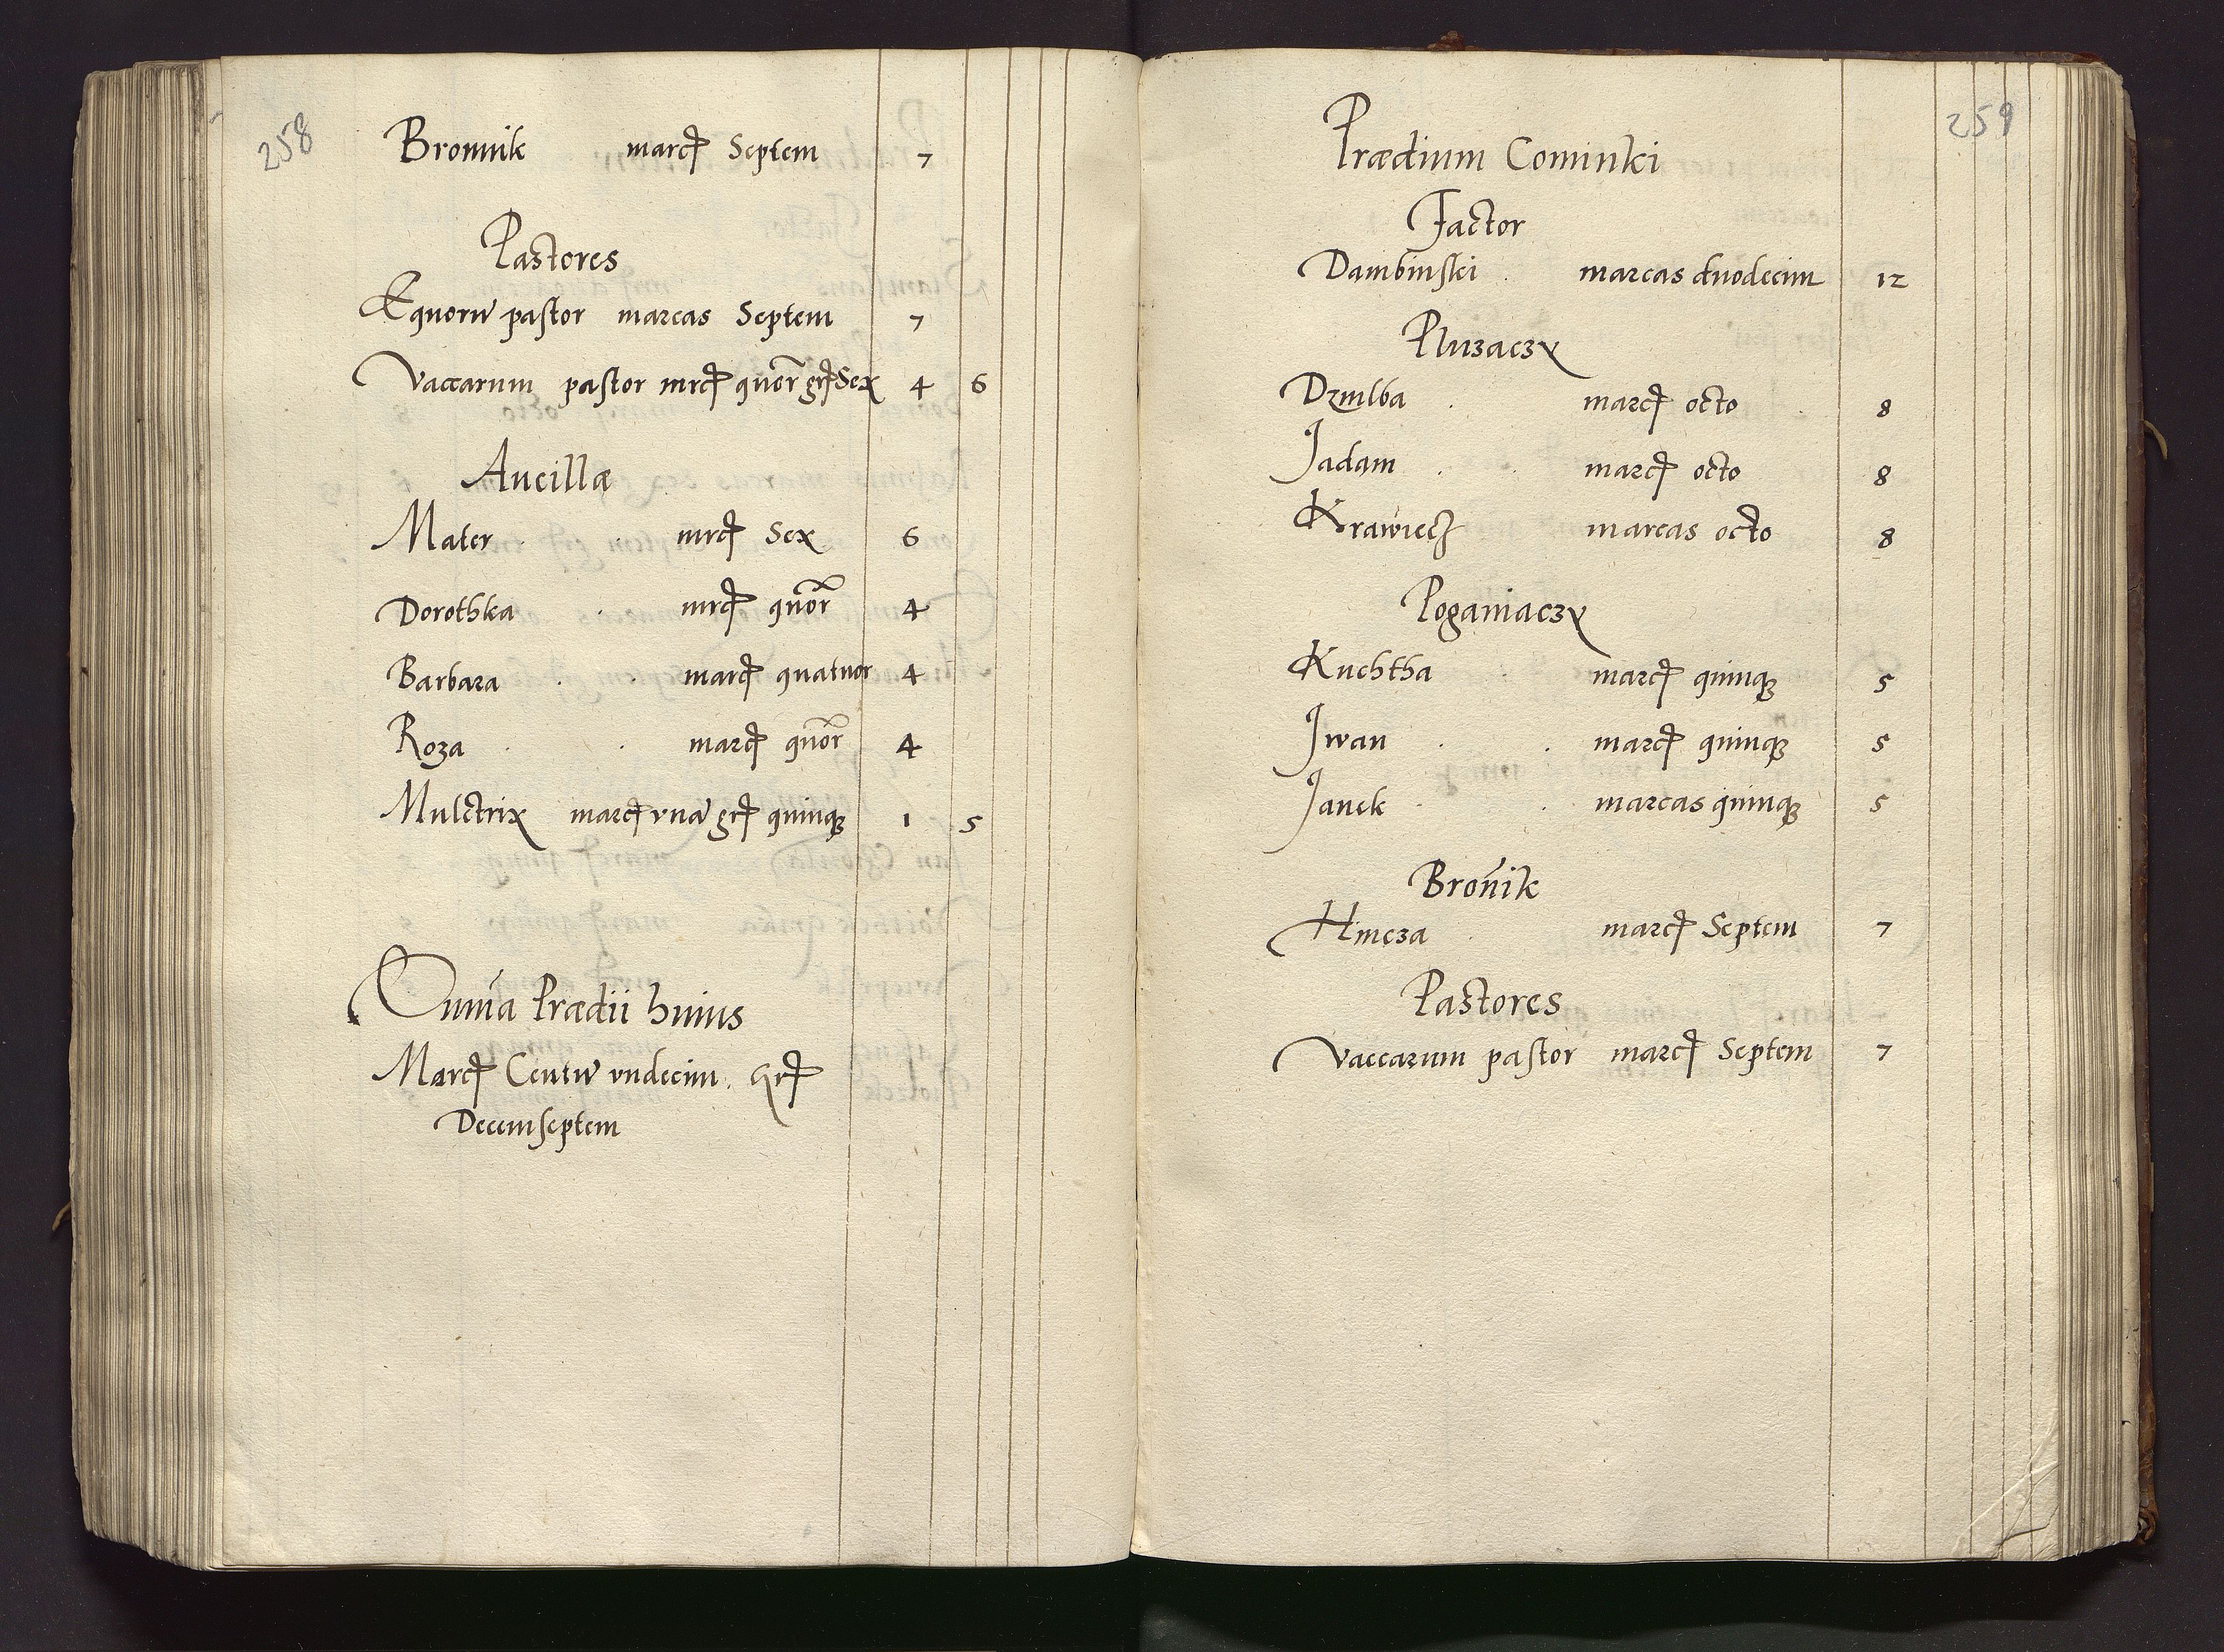 258
Bronnik marcẜ Septem 7
Pastores
Equorũ pastor marcas Septem 7
Vaccarum pastor mrcẜ quor̃ grẜ Sex 4 6
Ancillæ
Mater mrcẜ Sex 6
Dorothka mrcẜ quõr 4
Barbara marcẜ quatuor 4
Roza marcẜ quõr 4
Mulctrix marcẜ vnã grẜ quinqꝫ 1 5
Prædii huius
Marcẜ Centũ vndecim grẜ
Decemseptem
259
Prædium Cominki
Factor
Dambinski marcas duodecim 12
Pluzaczy
Dzmlba marcẜ octo 8
Jadam marcẜ octo 8
Krawiecz marcas octo 8
Poganiaczy
Kuchtha marcẜ quinqꝫ 5
Jwan marcẜ quinqꝫ 5
Janek marcas quinqꝫ 5
Broñik
Hincza marcẜ Septem 7
Pastores
Vaccarum pastor marcẜ Septem 7